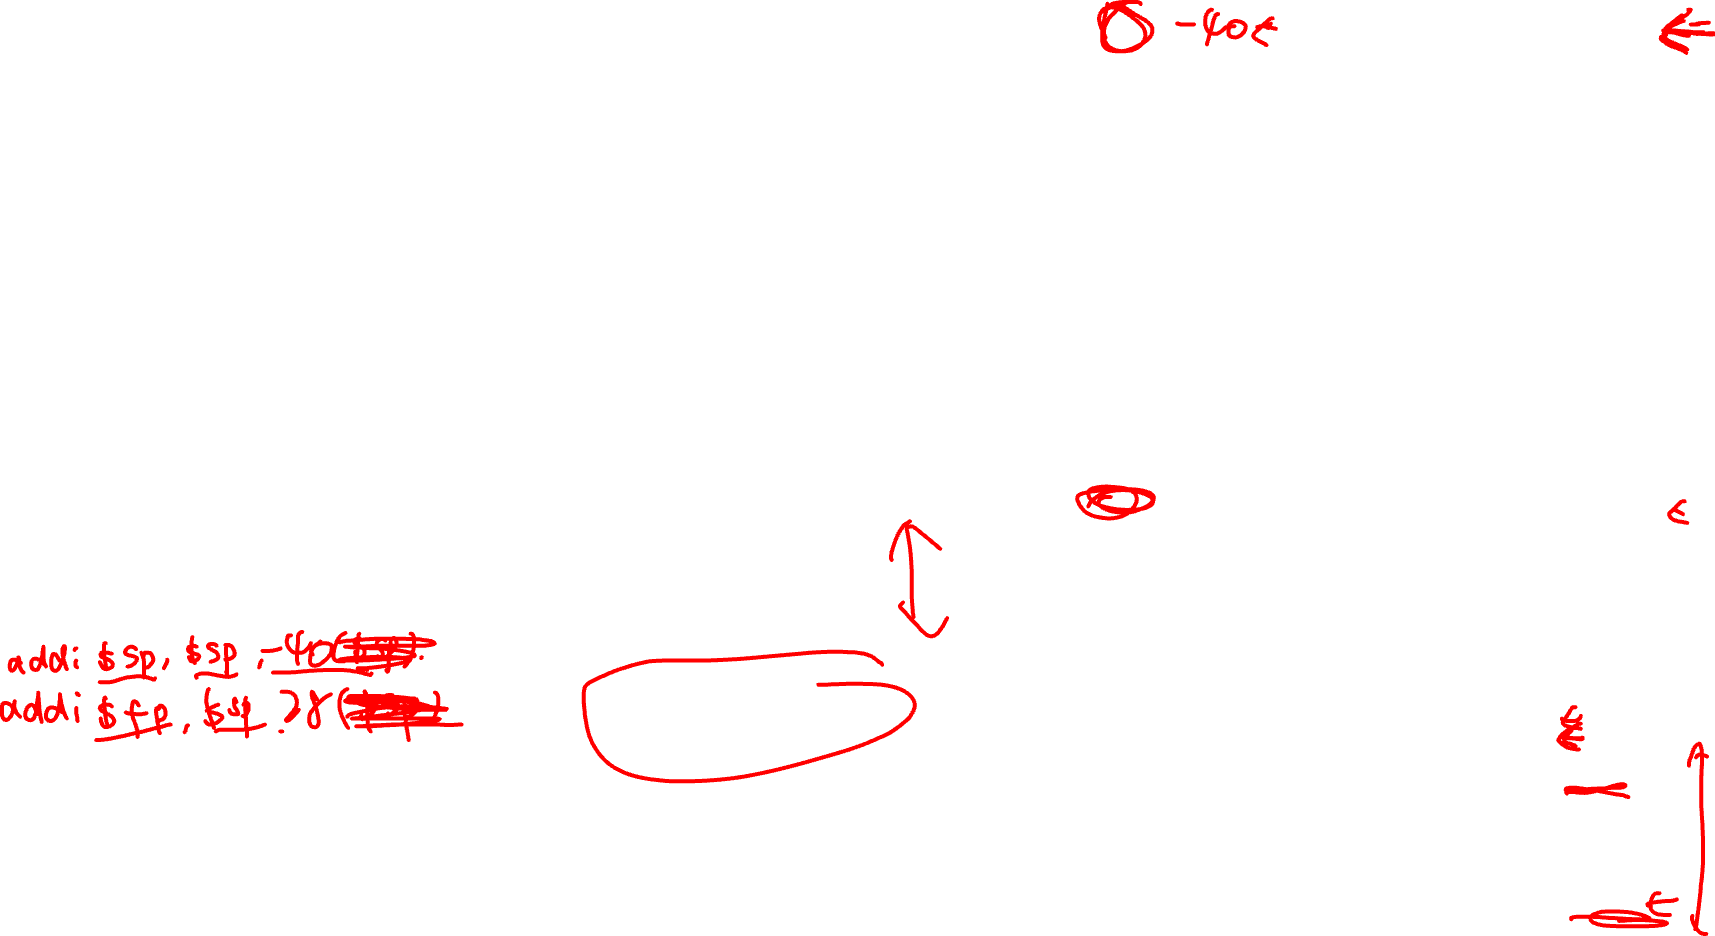 -40
addi $sp, $sp, -40
addi $fp, $sp, 28(